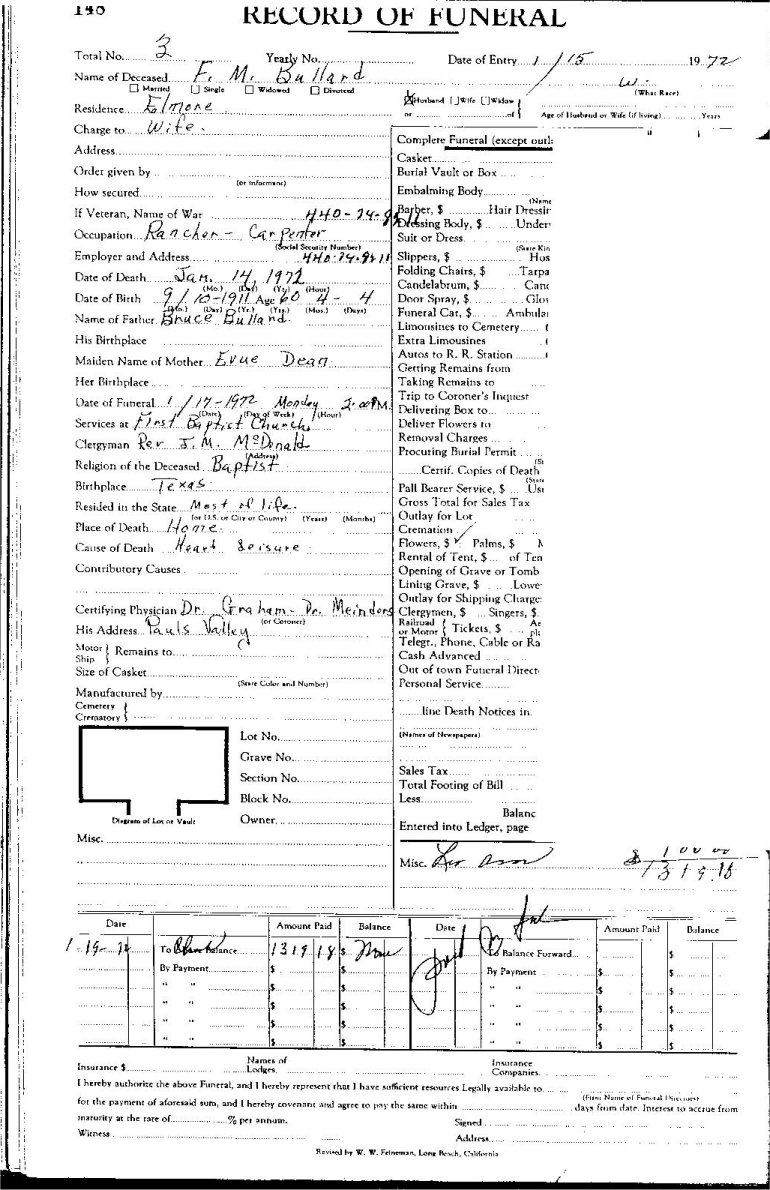 140
RECORD OF FUNERAL
Total No. 3 Yearly No. Date of Entry 1/15 1972
Name of Deceased F. M. Bullard W.
Married Single Widowed Divorced (What Race)
Residence Elmore Husband Wife Widow
or of Age of Husband or Wife (if living) Years
Charge to Wife.
Address
Order given by
(or informant)
How secured
If Veteran, Name of War
Occupation Rancher - Carpenter
(Social Security Number)
Employer and Address
Date of Death Jan. 14, 1972
(Mo.) (Day) (Yr.) (Hour)
Date of Birth 9/10-1911 Age 60 4 - 4
(Mo.) (Day) (Yr.) (Yrs.) (Mos.) (Days)
Name of Father Bruce Bullard
His Birthplace
Maiden Name of Mother Evue Dean
Her Birthplace
Date of Funeral 1/17-1972 Monday 2:00 P M.
(Date) (Day of Week) (Hour)
Services at First Baptist Church
Clergyman Rev J. M. McDonald
(Address)
Religion of the Deceased Baptist
Birthplace Texas
Resided in the State Most of life.
(or U.S. or City or County) (Years) (Months)
Place of Death Home
Cause of Death Heart Seisure
Contributory Causes
Certifying Physician Dr. Graham - Dr. Meinders
(or Coroner)
His Address Pauls Valley
Motor Ship Remains to
Size of Casket
(State Color and Number)
Manufactured by
Cemetery
Crematory
Lot No.
Grave No.
Section No.
Block No.
Diagram of Lot or Vault Owner
Misc.
Complete Funeral (except outl
Casket
Burial Vault or Box
Embalming Body
(Name
Barber, $ Hair Dressin
Dressing Body, $ Under
Suit or Dress
(State Kin
Slippers, $ Hos
Folding Chairs, $ Tarpa
Candelabrum, $ Cand
Door Spray, $ Glov
Funeral Car, $ Ambulan
Limousines to Cemetery
Extra Limousines
Autos to R. R. Station
Getting Remains from
Taking Remains to
Trip to Coroner's Inquest
Delivering Box to
Deliver Flowers to
Removal Charges
Procuring Burial Permit
(St
Certif. Copies of Death
(State
Pall Bearer Service, $ Use
Gross Total for Sales Tax
Outlay for Lot
Cremation
Flowers, $ Palms, $
Rental of Tent, $ of Ten
Opening of Grave or Tomb
Lining Grave, $ Lowe
Outlay for Shipping Charge
Clergymen, $ Singers, $
Railroad or Motor Tickets, $
Telegr., Phone, Cable or Ra
Cash Advanced
Out of town Funeral Direct
Personal Service
line Death Notices in
(Names of Newspapers)
Sales Tax
Total Footing of Bill
Less
Balanc
Entered into Ledger, page
Misc. $ 1319.18
Date Amount Paid Balance Date Amount Paid Balance
To Balance 1319 18 $ None To Balance Forward $
By Payment $ $ By Payment $ $
" " $ $ " " $ $
" " $ $ " " $ $
" " $ $ " " $ $
" " $ $ " " $ $
Insurance $ Names of Lodges Insurance Companies
I hereby authorize the above Funeral, and I hereby represent that I have sufficient resources Legally available to
(Firm Name of Funeral Directors)
for the payment of aforesaid sum, and I hereby covenant and agree to pay the same within days from date. Interest to accrue from
maturity at the rate of % per annum. Signed
Witness Address
Revised by W. W. Feineman, Long Beach, California